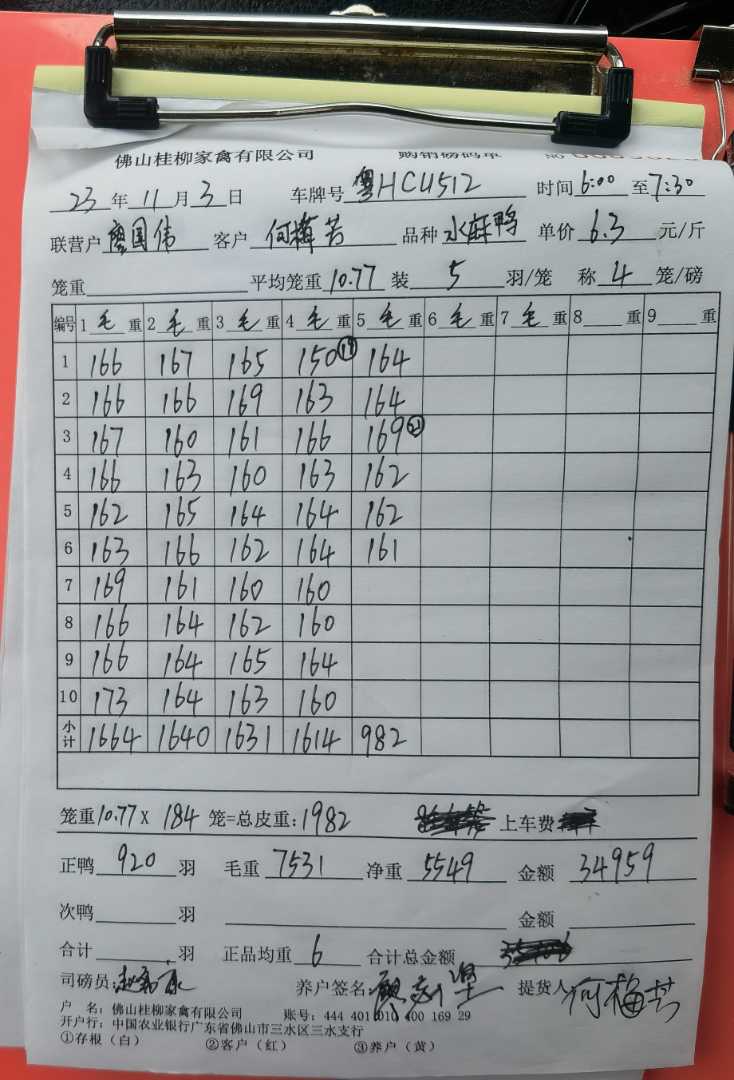 佛山桂柳家禽有限公司 购销磅码单 No
23年11月3日 车牌号粤HCU512 时间6:00至7:30
联营户廖国伟 客户何梅芳 品种水鸭 单价6.3元/斤
笼重 平均笼重10.77装5羽/笼 称4笼/磅
编号 1毛重 2毛重 3毛重 4毛重 5毛重 6毛重 7毛重 8重 9重
1 166 167 165 150⑲ 164
2 166 166 169 163 164
3 167 160 161 166 169㉑
4 166 163 160 163 162
5 162 165 164 164 162
6 163 166 162 164 161
7 169 161 160 160
8 166 164 162 160
9 166 164 165 164
10 173 164 163 160
小计 1664 1640 1631 1614 982
笼重10.77X184笼=总皮重:1982 上车费
正鸭920羽 毛重7531 净重5549 金额34959
次鸭羽 金额
合计羽 正品均重6 合计总金额
司磅员: 养户签名 提货人何梅芳
户 名:佛山桂柳家禽有限公司 账号:444 401 010 400 169 29
开户行:中国农业银行广东省佛山市三水区三水支行
①存根(白) ②客户(红) ③养户(黄)